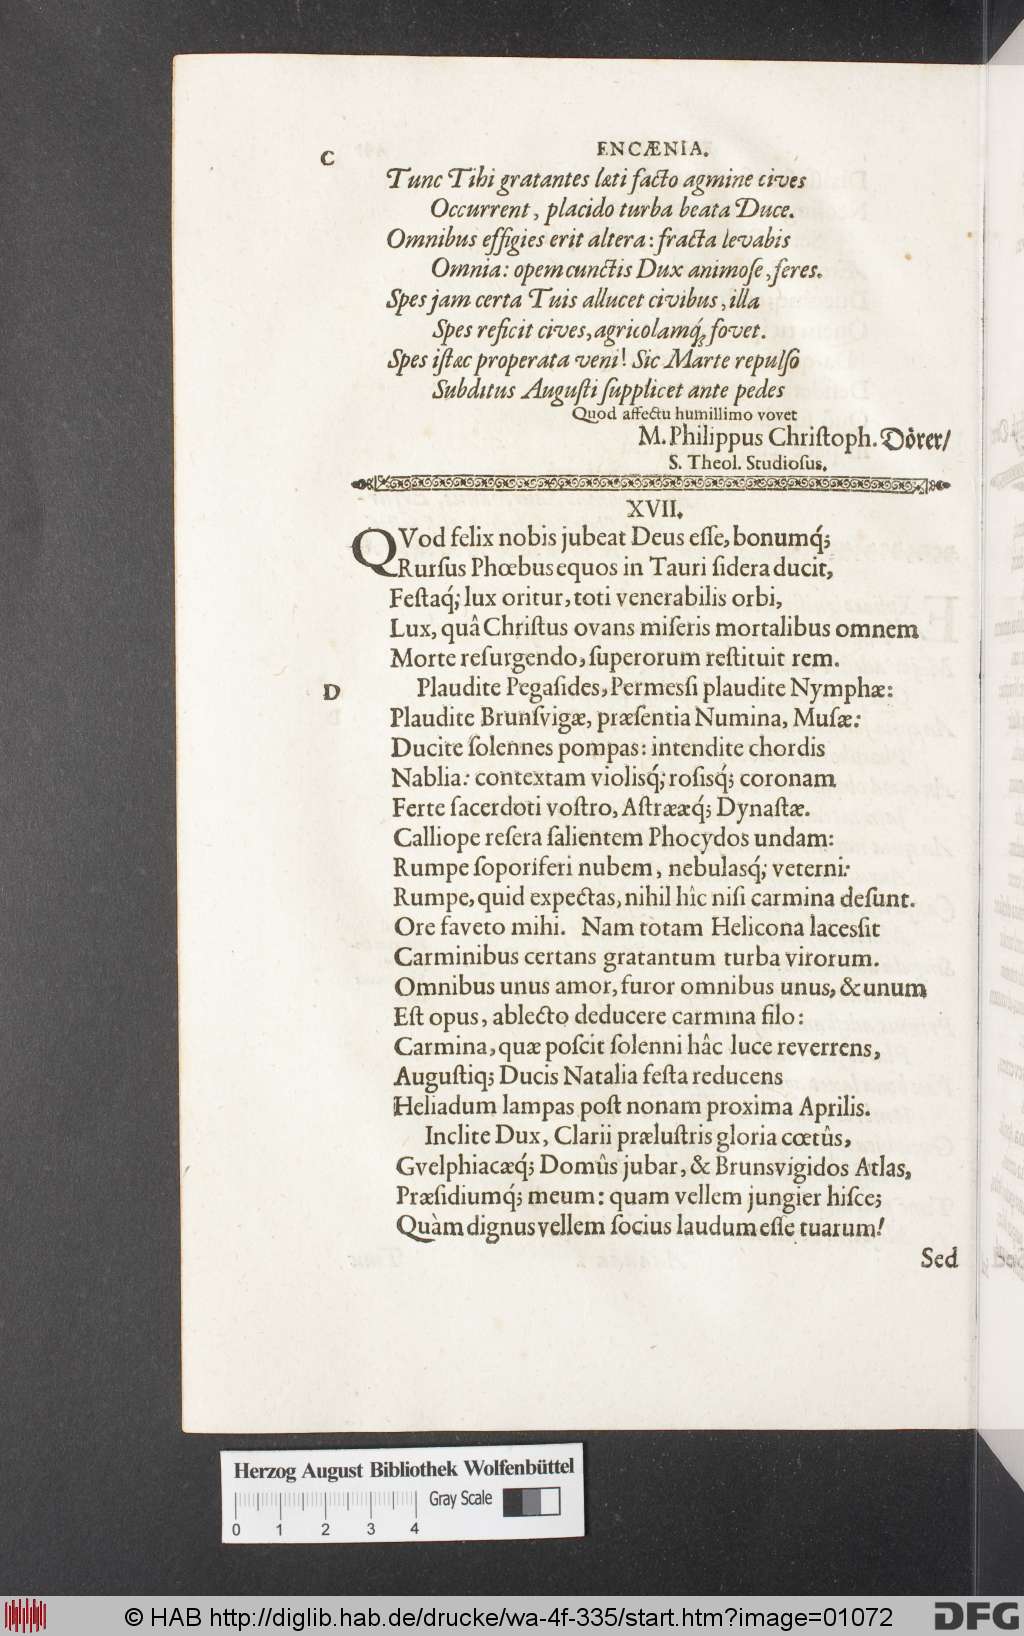 ENCÆNIA.
C
Tunc Tibi gratantes læti facto agmine cives
Occurrent, placido turba beata Duce.
Omnibus effigies erit altera: fracta levabis
Omnia: opem cunctis Dux animoſe, feres.
Spes jam certa Tuis allucet civibus, illa
Spes reficit cives, agricolamq́; fovet.
Spes iſtæc properata veni! Sic Marte repulſo
Subditus Auguſti ſupplicet ante pedes
Quod affectu humillimo vovet
M. Philippus Chriſtoph. Dörer/
S. Theol. Studioſus.
XVII.
QVod felix nobis jubeat Deus eſſe, bonumq́;
Rurſus Phœbus equos in Tauri ſidera ducit,
Feſtaq́; lux oritur, toti venerabilis orbi,
Lux, quâ Chriſtus ovans miſeris mortalibus omnem
Morte reſurgendo, ſuperorum reſtituit rem.
D
Plaudite Pegaſides, Permeſſi plaudite Nymphæ:
Plaudite Brunſvigæ, præſentia Numina, Muſæ:
Ducite ſolennes pompas: intendite chordis
Nablia: contextam violisq́; roſisq́; coronam
Ferte ſacerdoti voſtro, Aſtrææq́; Dynaſtæ.
Calliope reſera ſalientem Phocydos undam:
Rumpe ſoporiferi nubem, nebulasq́; veterni:
Rumpe, quid expectas, nihil hîc niſi carmina deſunt.
Ore faveto mihi. Nam totam Helicona laceſſit
Carminibus certans gratantum turba virorum.
Omnibus unus amor, furor omnibus unus, & unum
Eſt opus, ablecto deducere carmina filo:
Carmina, quæ poſcit ſolenni hâc luce reverrens,
Auguſtiq; Ducis Natalia feſta reducens
Heliadum lampas poſt nonam proxima Aprilis.
Inclite Dux, Clarii præluſtris gloria cœtûs,
Gvelphiacæq́; Domûs jubar, & Brunsvigidos Atlas,
Præſidiumq́; meum: quam vellem jungier hiſce;
Quàm dignus vellem ſocius laudum eſſe tuarum!
Sed
Herzog August Bibliothek Wolfenbüttel
Gray Scale
0 1 2 3 4
© HAB http://diglib.hab.de/drucke/wa-4f-335/start.htm?image=01072
DFG